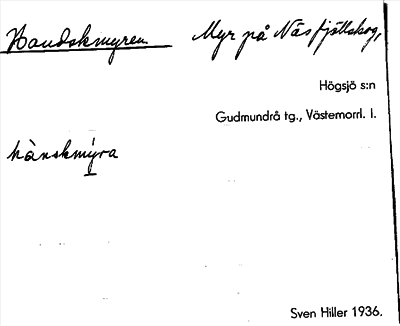 Handskmyren Myr på Näsfjällskog,
Högsjö s:n
Gudmundrå tg., Västernorrl. l.
hànskmýra
Sven Hiller 1936.